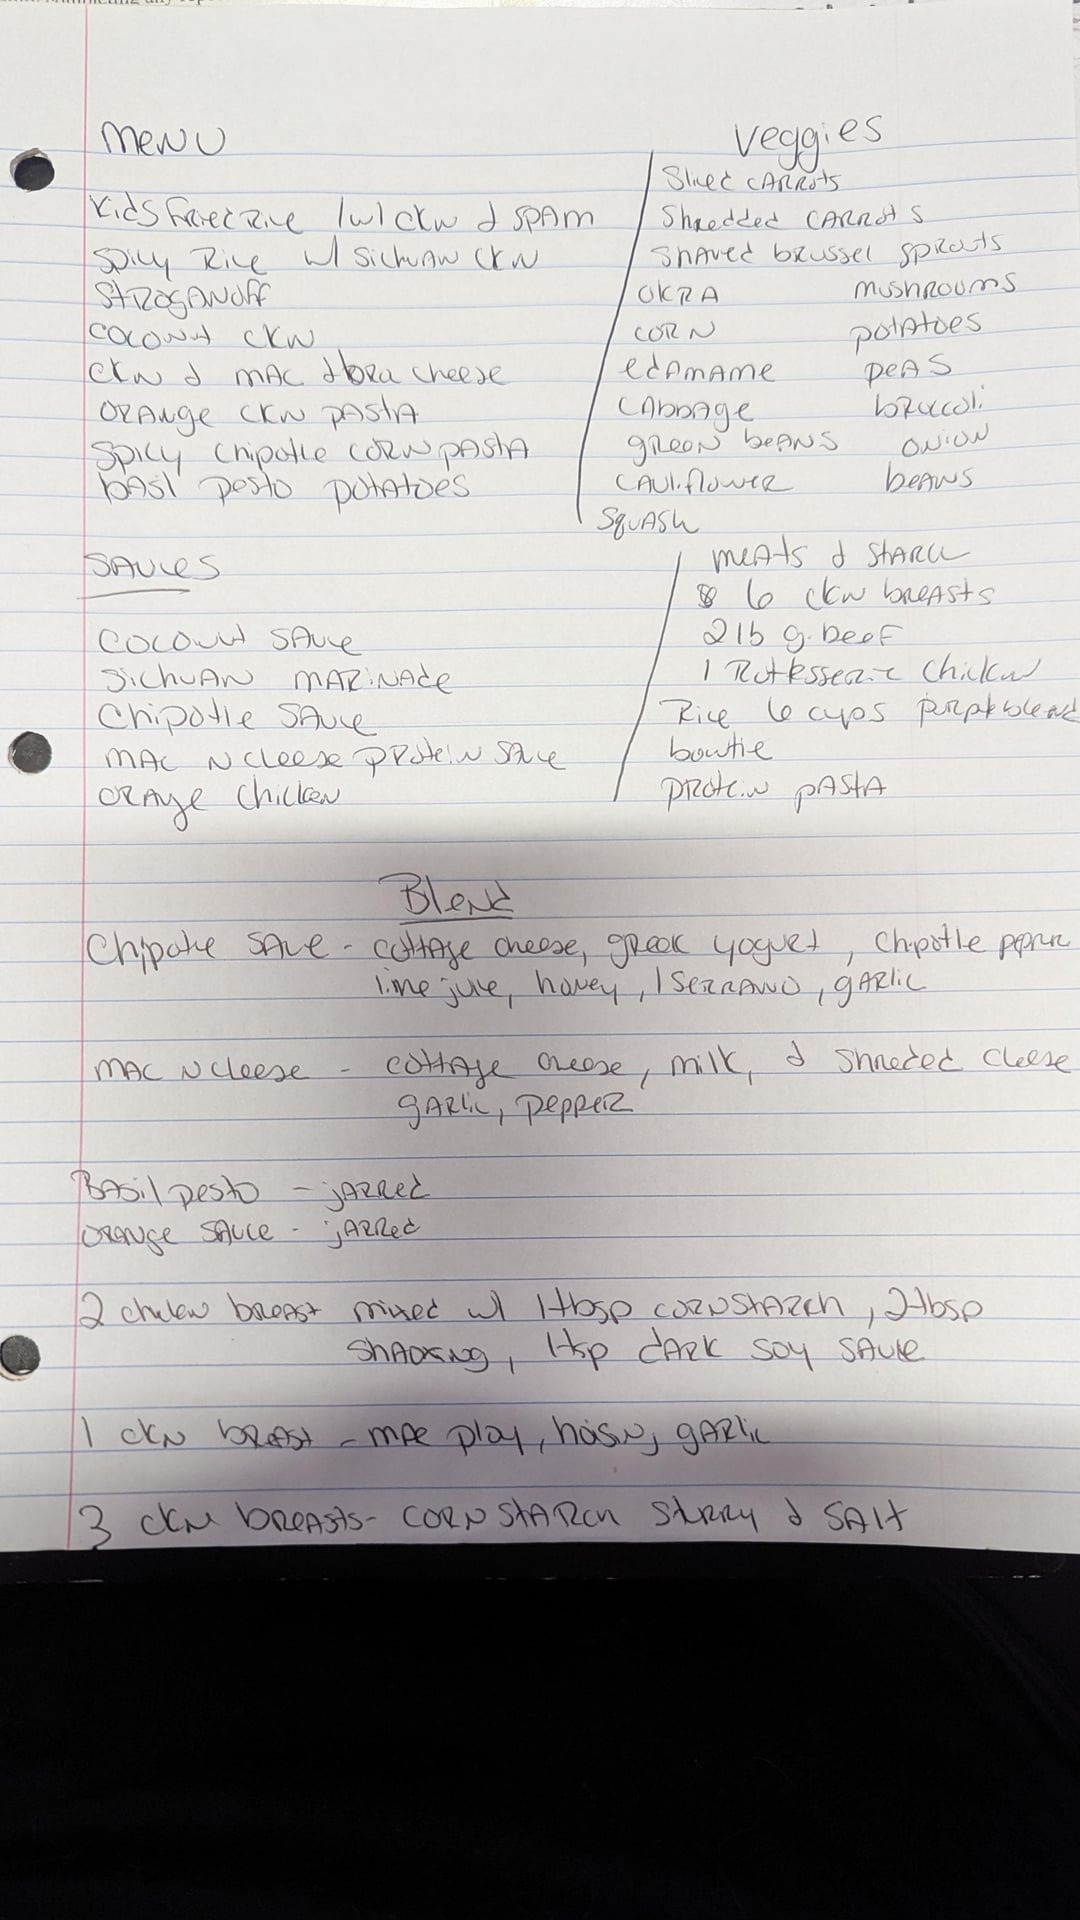 Menu
Kids Fried Rice /w/ ckn & SPAM
Spicy Rice w/ Sichuan ckn
Stroganoff
Coconut ckn
ckn & mac cheese
Orange ckn pasta
Spicy chipotle corn pasta
basil pesto potatoes
Veggies
Sliced carrots
Shredded carrots
Shaved brussel sprouts
okra mushrooms
corn potatoes
edamame peas
cabbage broccoli
green beans onion
cauliflower beans
Squash
Sauces
Coconut sauce
Sichuan marinade
Chipotle sauce
mac n cheese protein sauce
orange chicken
meats & starch
6 ckn breasts
2 lb g. beef
1 Rotesserie chicken
Rice 6 cups purple blend
bowtie
protein pasta
Blend
Chipotle sauce - cottage cheese, greek yogurt, chipotle pepper
lime juice, honey, 1 serrano, garlic
mac n cheese - cottage cheese, milk, & shreded cheese
garlic, pepper
Basil pesto - jarred
orange sauce - jarred
2 chicken breast mixed w/ 1 tbsp cornstarch, 2 tbsp
shaoxing, 1 tsp dark soy sauce
1 ckn breast - mae ploy, hoisin, garlic
3 ckn breasts - cornstarch slurry & salt